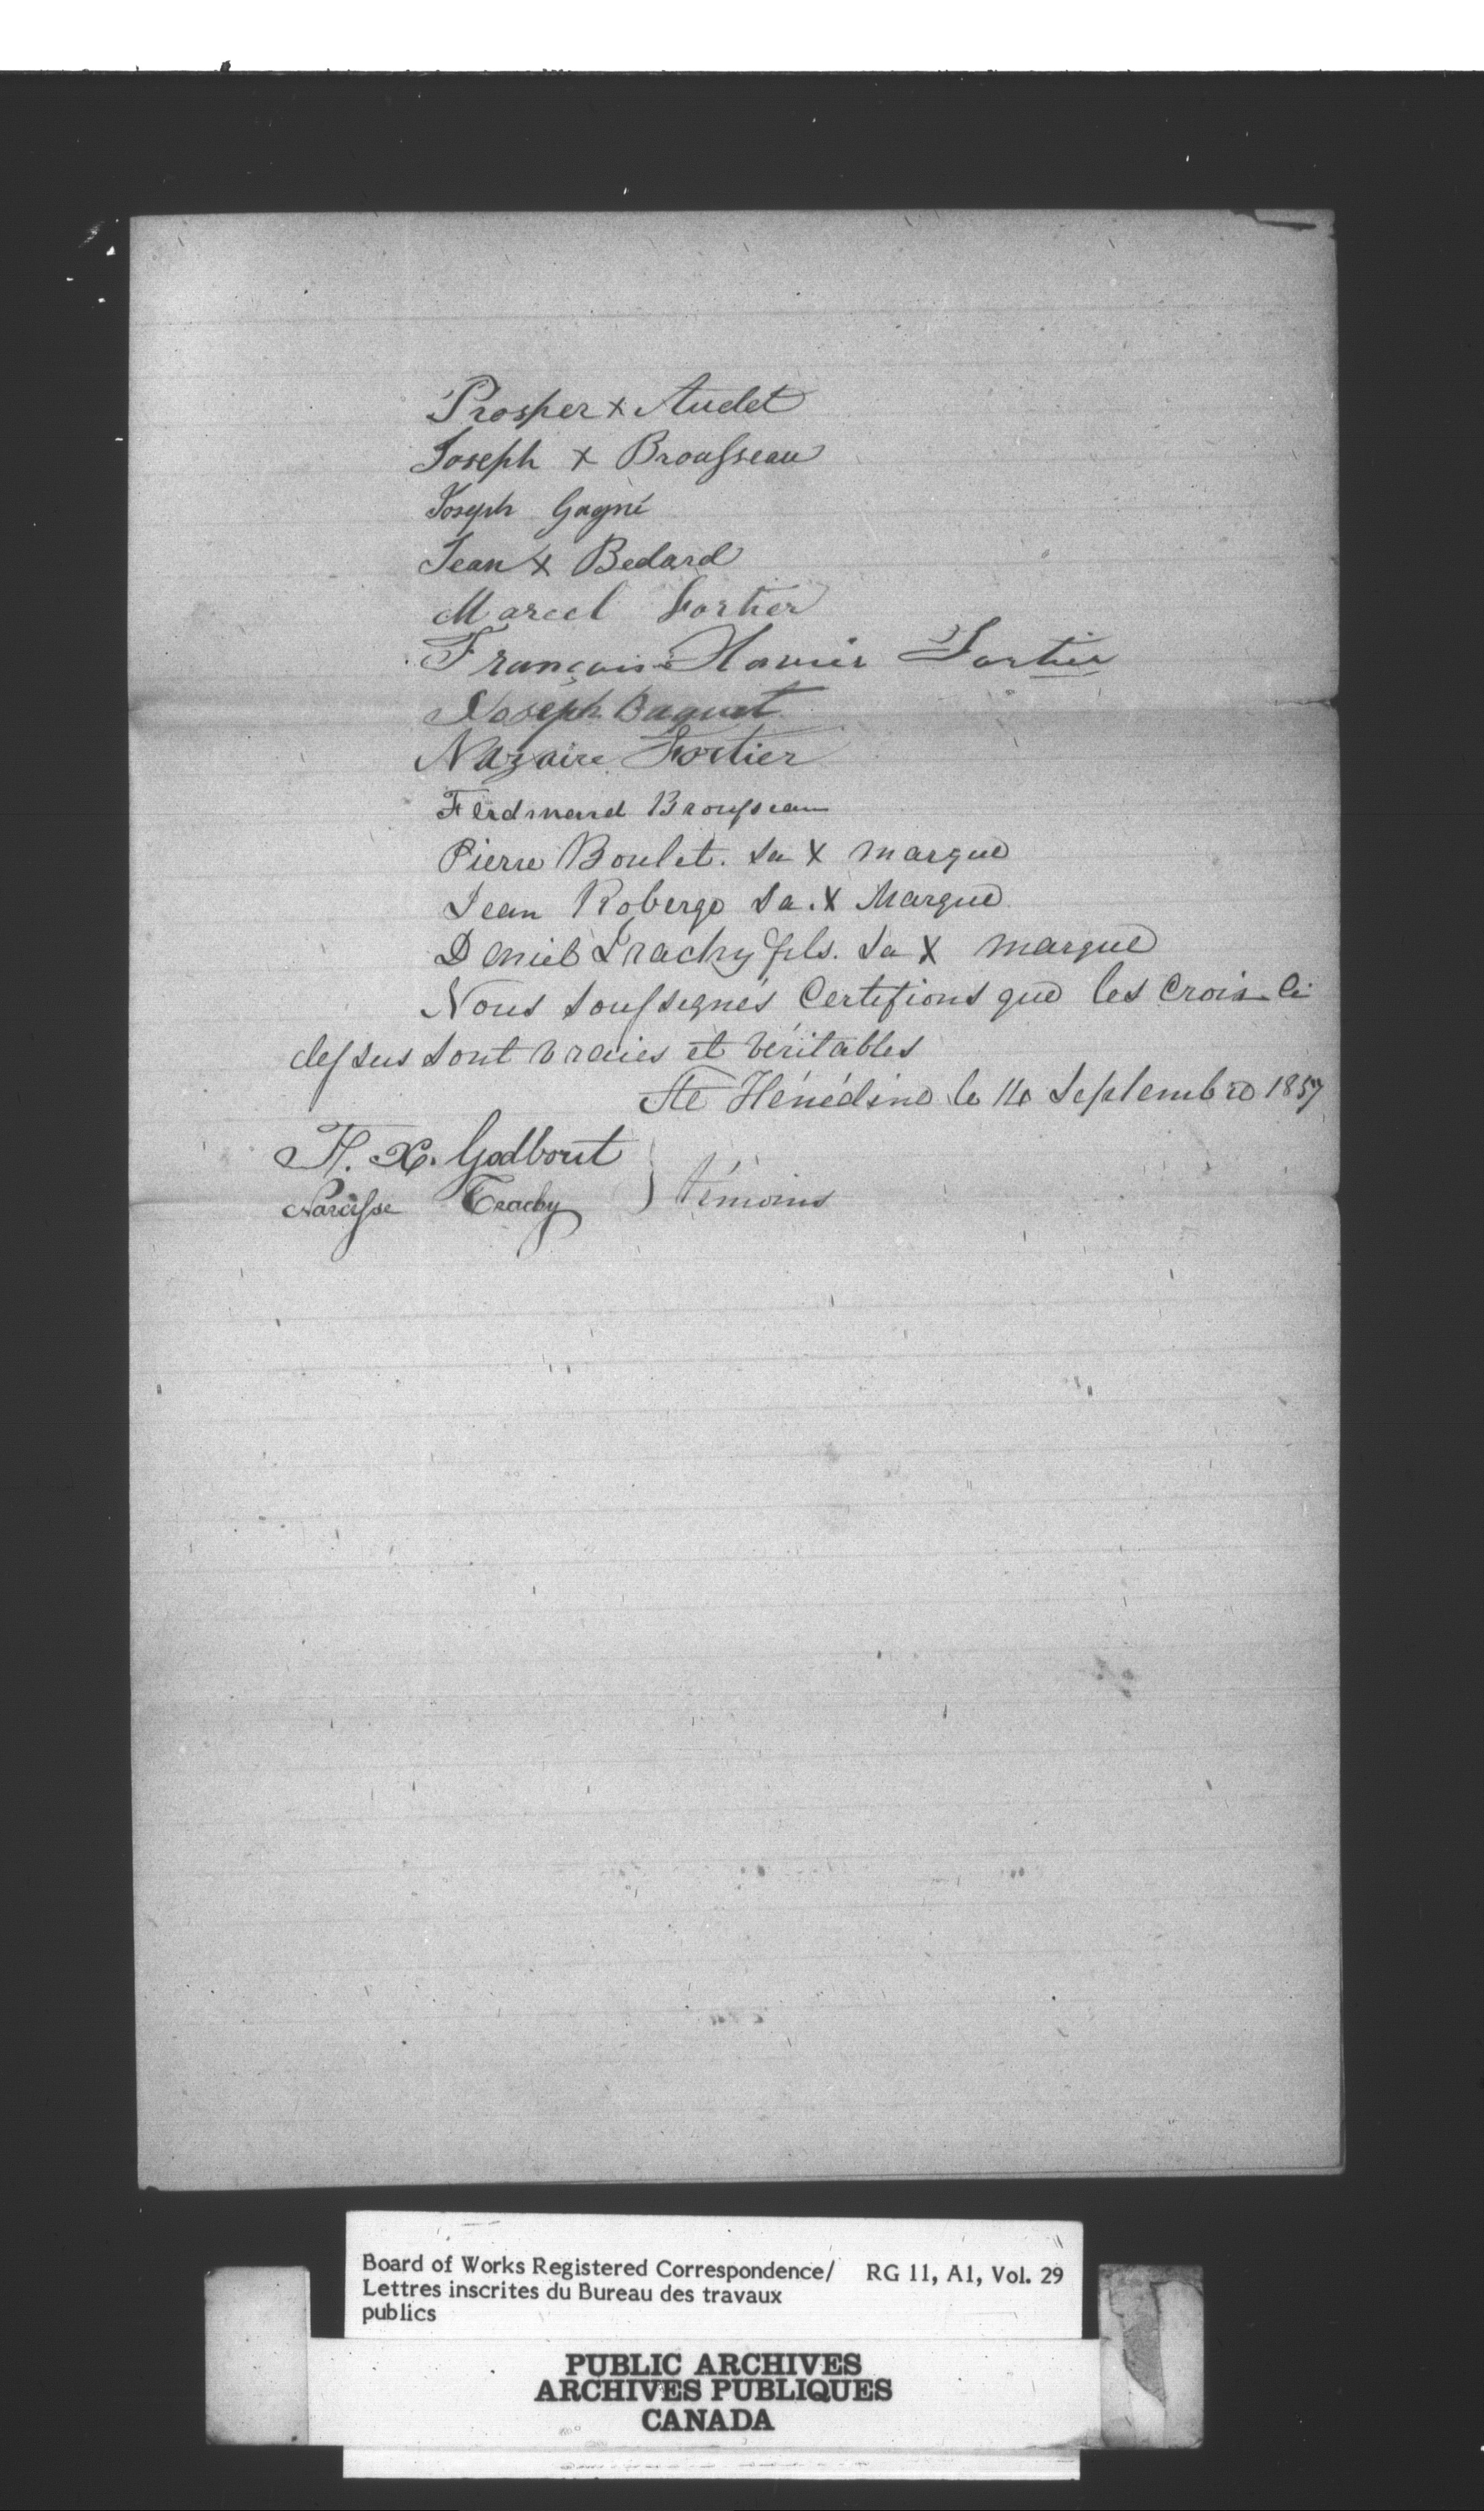 Prosper x Audet
Joseph x Brousseau
Joseph Gagné
Jean x Bedard
Marcel Fortier
François Xavier Fortier
Joseph Baquet
Nazaire Fortier
Ferdinand Brousseau
Pierre Boulet. Sa X marque
Jean Roberge Sa. X Marque
Daniel Trachy fils. Sa X marque
Nous soussignés Certifions que les Croix Ci
dessus sont vraies et véritables
Ste Hénédine le 14 Septembre 1857
F. X. Godbout
Narcisse Trachy } témoins
Board of Works Registered Correspondence/ RG 11, A1, Vol. 29
Lettres inscrites du Bureau des travaux
publics
PUBLIC ARCHIVES
ARCHIVES PUBLIQUES
CANADA